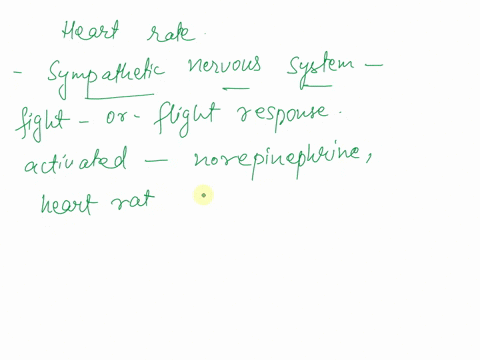 Heart rate.
- Sympathetic nervous system -
fight - or - flight response.
activated - norepinephrine,
heart rat